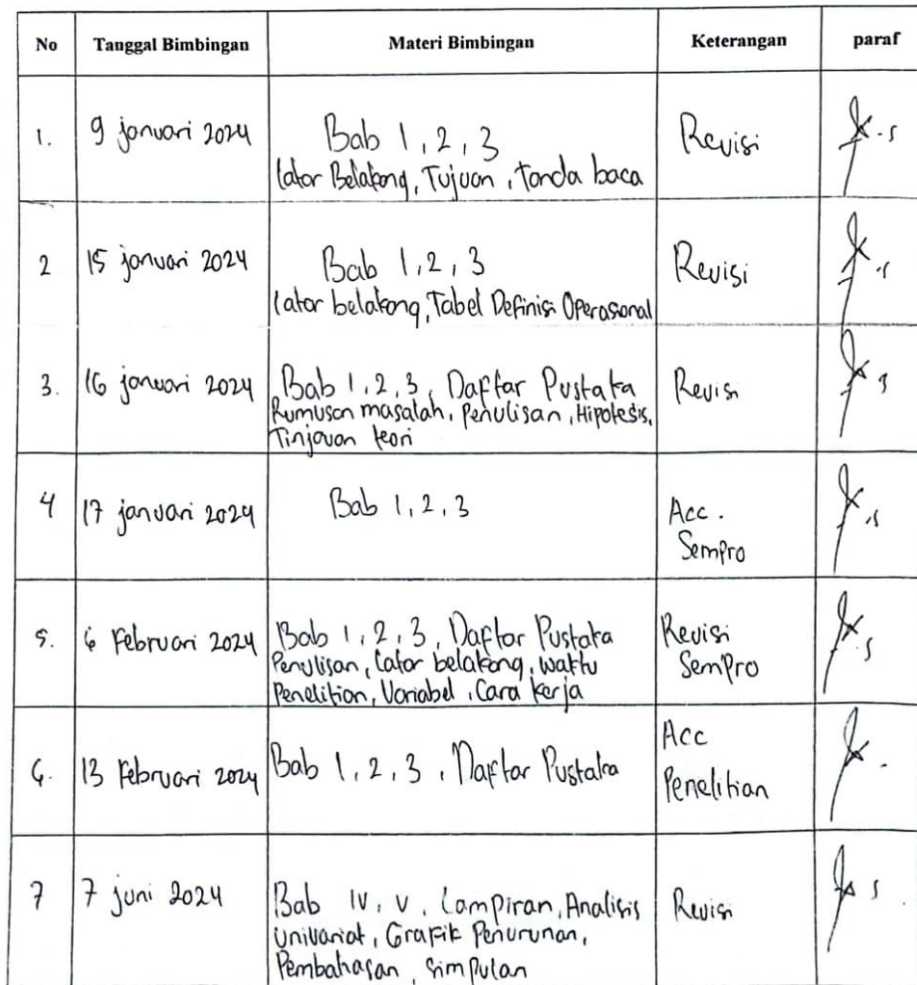 No Tanggal Bimbingan Materi Bimbingan Keterangan paraf
1. 9 januari 2024 Bab 1, 2, 3 Revisi
Latar Belakang, Tujuan, tanda baca
2 15 januari 2024 Bab 1, 2, 3 Revisi
Latar belakang, Tabel Definisi Operasional
3. 16 januari 2024 Bab 1, 2, 3, Daftar Pustaka Revisi
Rumusan masalah, Penulisan, Hipotesis,
Tinjauan teori
4 17 januari 2024 Bab 1, 2, 3 Acc.
Sempro
5. 6 Februari 2024 Bab 1, 2, 3, Daftar Pustaka Revisi
Penulisan, latar belakang, waktu Sempro
Penelitian, Variabel, Cara kerja
6. 13 Februari 2024 Bab 1, 2, 3, Daftar Pustaka Acc
Penelitian
7 7 juni 2024 Bab IV, V, Lampiran, Analisis Revisi
Univariat, Grafik Penurunan,
Pembahasan, Simpulan